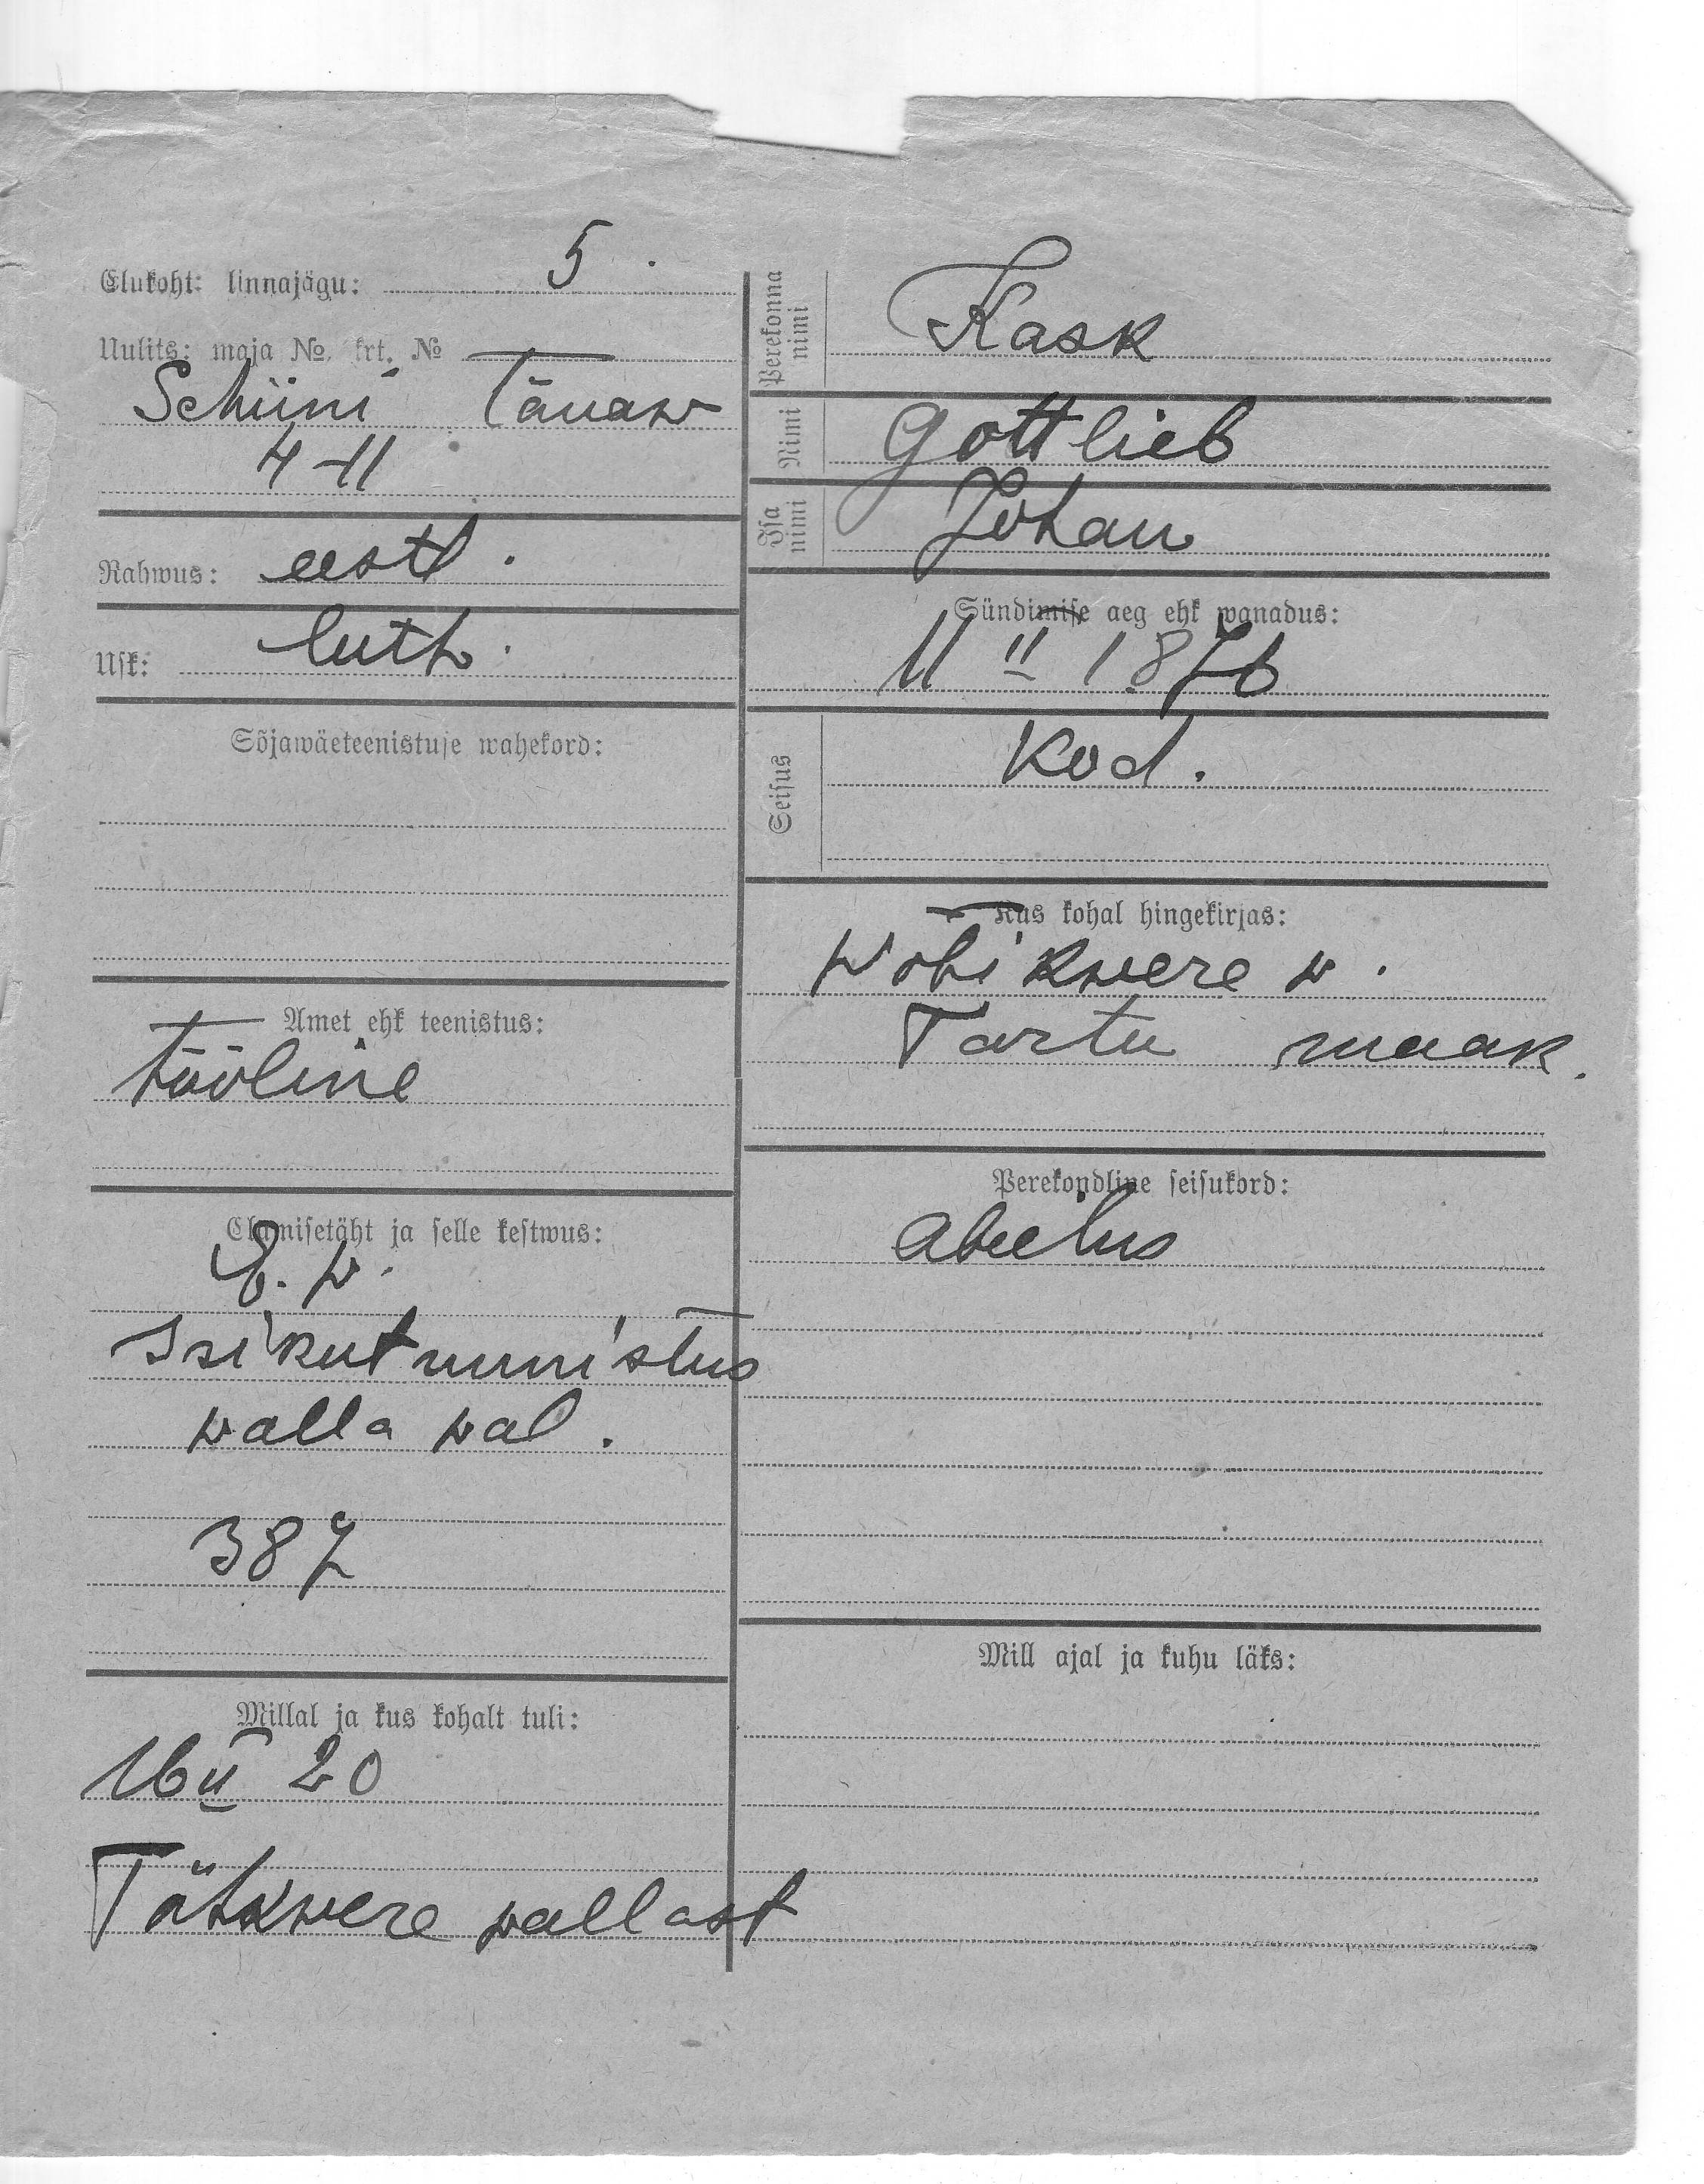 Elukoht: linnajägu: 5.
Uulits: maja № krt. №
Schüni Tänaw
4-11
Rahwus: eestl.
Usk: luth.
Sõjawäeteenistuse wahekord:
Amet ehk teenistus:
tööline
Elamisetäht ja selle kestwus:
E. W.
Isikutunnistus
walla wal.
387
Millal ja kus kohalt tuli:
16 II 20
Tähkwere wallast
Perekonna nimi
Kask
Nimi
Gottlieb
Isa nimi
Johan
Sündimise aeg ehk wanadus:
11 II 1876
Seisus
Kod.
Kus kohal hingekirjas:
Wõtikwere w.
Tartu maak.
Perekondline seisukord:
abielus
Mill ajal ja kuhu läks: